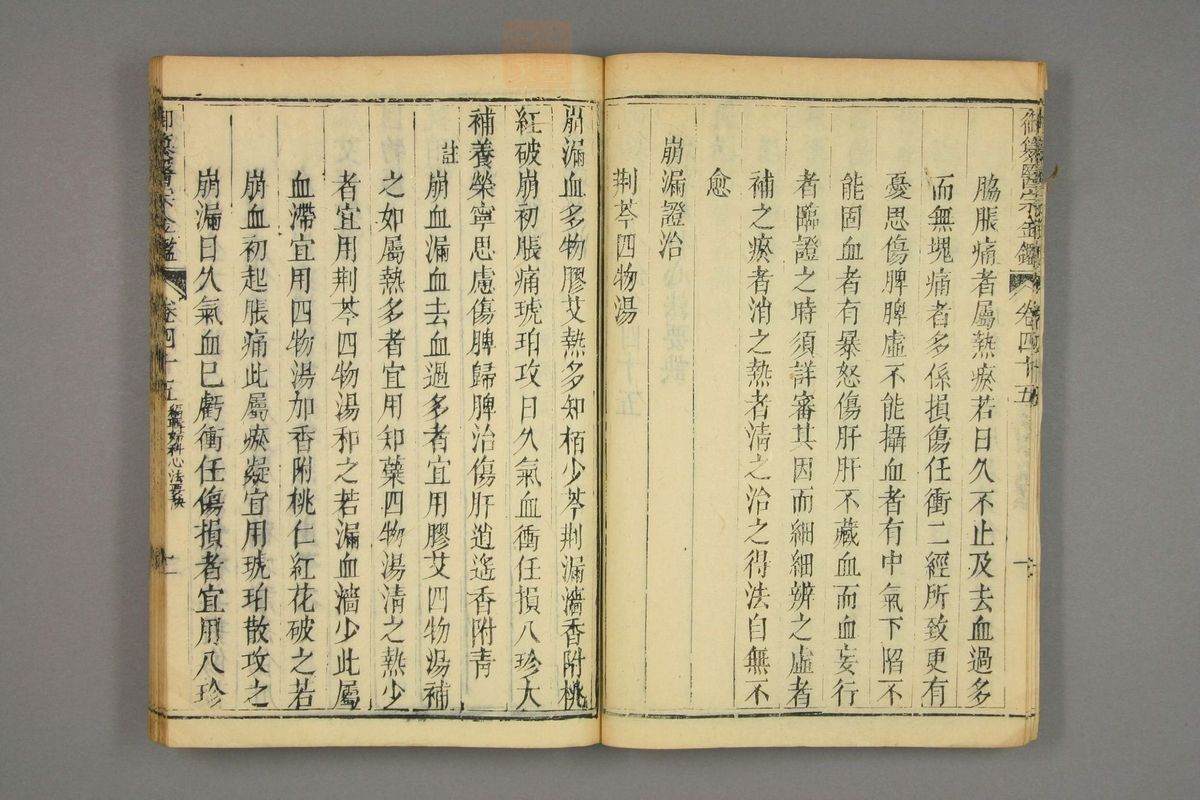 御纂醫宗金鑑 卷四十五
脇脹痛者屬熱瘀若日久不止及去血過多
而無塊痛者多係損傷任衝二經所致更有
憂思傷脾脾虛不能攝血者有中氣下陷不
能固血者有暴怒傷肝肝不藏血而血妄行
者臨證之時須詳審其因而細細辨之虛者
補之瘀者消之熱者清之治之得法自無不
愈
崩漏證治
荆芩四物湯
崩漏血多物膠艾熱多知栢少芩荆漏濇香附桃
紅破崩初脹痛琥珀攻日久氣血衝任損八珍大
補養榮寧思慮傷脾歸脾治傷肝逍遙香附青
註
崩血漏血去血過多者宜用膠艾四物湯補
之如屬熱多者宜用知蘗四物湯清之熱少
者宜用荆芩四物湯和之若漏血濇少此屬
血滯宜用四物湯加香附桃仁紅花破之若
崩血初起脹痛此屬瘀凝宜用琥珀散攻之
崩漏日久氣血已虧衝任傷損者宜用八珍
御纂醫宗金鑑 卷四十五 婦科心法要訣